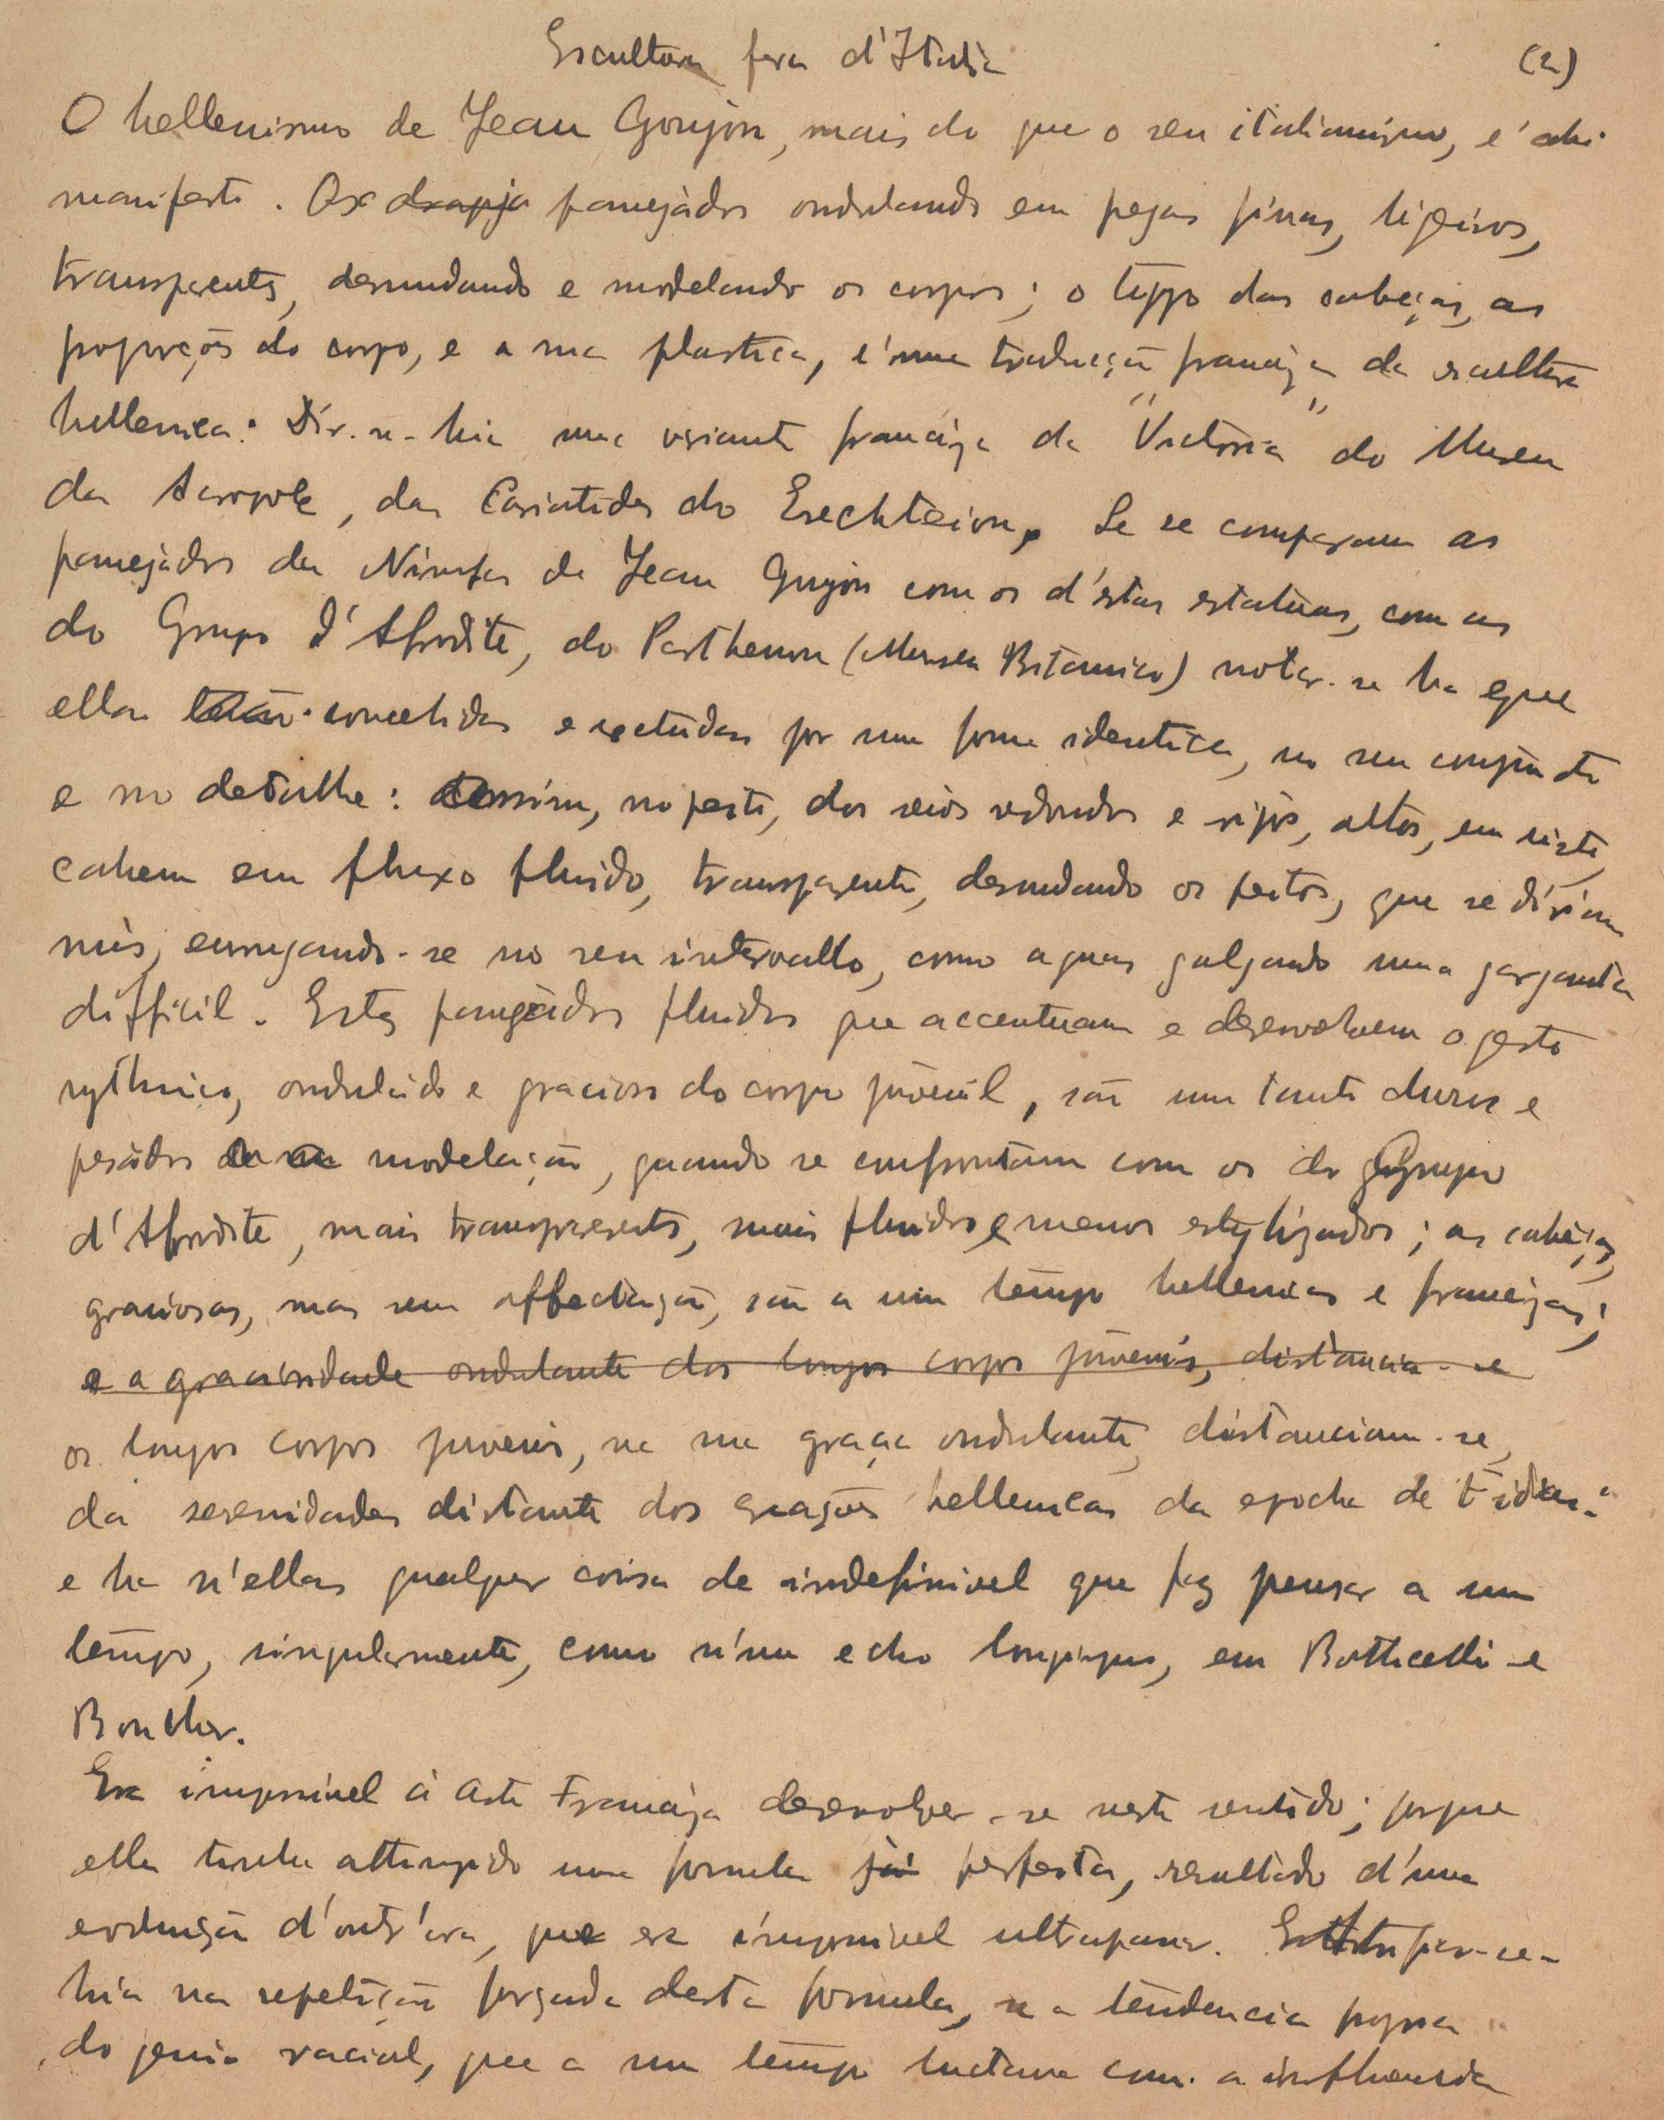 Escultura fora d'Italia (2)
O hellenismo de Jean Goujon, mais do que o seu italianismo, é ahi
manifesto. Os panejados ondulando em pregas finas, ligeiros,
transparentes, desnudando e modelando os corpos; o typo das cabeças, as
proporções do corpo, e a sua plastica, é uma traducção franceza da escultura
hellenica. Dir-se-hia uma variante franceza da "Victoria" do Museu
da Acropole, das Cariatides do Erechteion. Se se comparam os
panejados das Ninfas de Jean Gujon com os d'estas estatuas, com as
do Grupo d'Afrodite, do Parthenon (Museu Britanico) notar-se ha que
ellas são concebidas e executadas por uma forma identica, no seu conjuncto
e no detalhe: assim, no peito, dos seios redondos e rijos, altos, em riste,
cahem em fluxo fluido, transparente, desnudando os peitos, que se diriam
nús, enrugando-se no seu intervallo, como aguas galgando uma garganta
difficil. Estes panejados fluidos que accentuam e desenvolvem o gesto
rythmico, ondulado e gracioso do corpo juvenil, são um tanto duros e
pesados de modelação, quando se confrontam com os do Grupo
d'Afrodite, mais transparentes, mais fluidos e menos estylizados; as cabeças,
graciosas, mas sem affectação, são a um tempo hellenicas e francezas;
e a graciosidade ondulante dos longos corpos juvenis, distancia-se
os longos corpos juvenis, na sua graça ondulante, distanciam-se,
da serenidade distante das creações hellenicas da epocha de Fidias:
e ha n'ellas qualquer coisa de indefinivel que faz pensar a um
tempo, singularmente, como n'um echo longinquo, em Botticelli e
Boucher.
Era impossivel á Arte Franceza desenvolver-se neste sentido; porque
ella tinha attingido uma formula já perfeita, resultado d'uma
evolução d'outr'ora, que era impossivel ultrapassar.
hia na repetição forçada desta formula, se a tendencia propria
do genio racial, que a um tempo luctava com a influencia